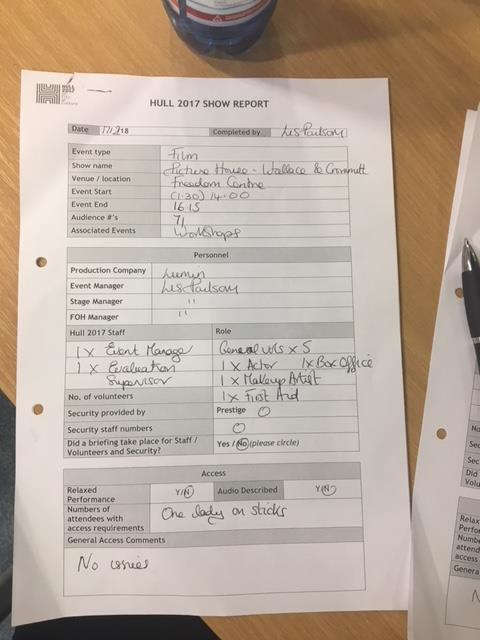 HULL 2017 SHOW REPORT
Date 18 Completed by
Event type Film
Show name Picture House - Wallace & Grommitt
Venue / location Freedom Centre
Event Start (1:30) 14:00
Event End 16 15
Audience #'s 71
Associated Events Workshops
Personnel
Production Company Lumen
Event Manager
Stage Manager "
FOH Manager "
Hull 2017 Staff Role
1 x Event Manager General vols x 5
1 x Evaluation 1 x Actor 1 x Box Office
Supervisor 1 x Makeup Artist
No. of volunteers 1 x First Aid
Security provided by Prestige O
Security staff numbers O
Did a briefing take place for Staff / Volunteers and Security? Yes / No (please circle)
Access
Relaxed Performance Y/N Audio Described Y/N
Numbers of attendees with access requirements One lady on sticks
General Access Comments
No issues